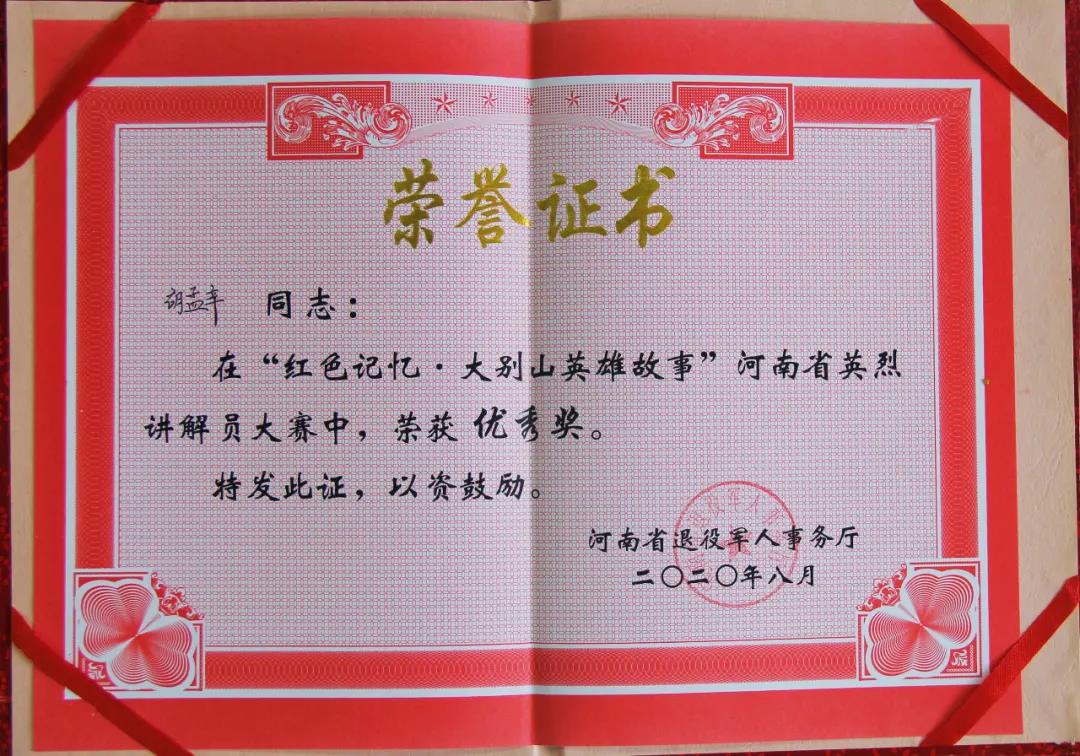 荣誉证书
胡孟辛 同志：
在“红色记忆·大别山英雄故事”河南省英烈
讲解员大赛中，荣获 优秀奖。
特发此证，以资鼓励。
河南省退役军人事务厅
二〇二〇年八月